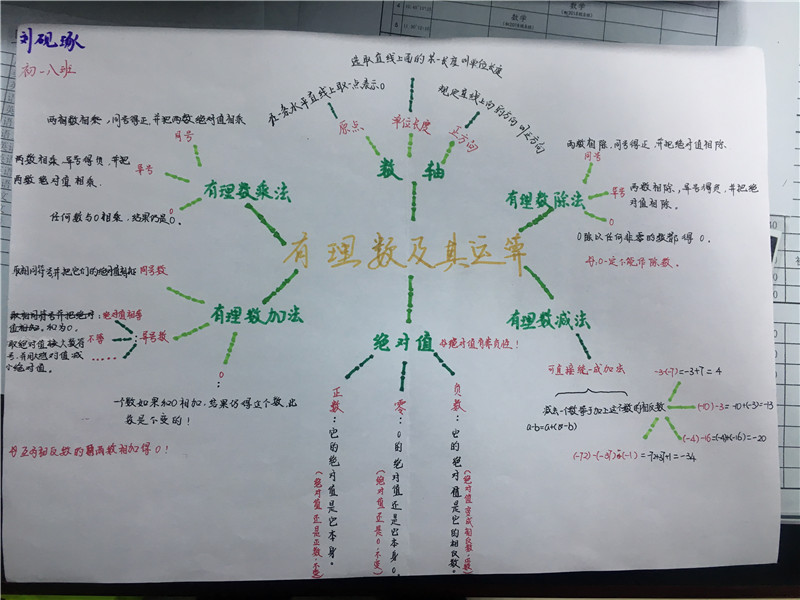 刘砚琢
初一八班
选取直线上面的某一长度叫单位长度
在一条水平直线上取一点表示0
规定直线上向右的方向叫正方向
原点
单位长度
正方向
数 轴
两相数相乘,同号得正,并把两数绝对值相乘
同号
两数相乘,异号得负,并把
两数绝对值相乘.
异号
任何数与0相乘,结果仍是0。
0
有理数乘法
两数相除,同号得正,并把绝对值相除
同号
异号
两数相除,异号得负,并把绝
对值相除。
0
0除以任何非零的数都得0。
0一定不能作除数。
有理数除法
有理数及其运算
取相同符号并把它们的绝对值相加
同号数
有理数加法
绝对值相等
值相加,和为0。
不等
异号数
取绝对值较大数符
号,并用大绝对值减
小绝对值。
0:
一个数如果和0相加,结果仍得这个数,此
数是不变的!
互为相反数的两数相加得0!
绝对值
绝对值有非负性!
正数:它的绝对值是它本身。
(绝对值还是正数,不变)
零:0的绝对值还是它本身0。
(绝对值还是0,不变)
负数:它的绝对值是它的相反数。
有理数减法
可直接统一成加法
减去一个数等于加上这个数的相反数
a-b=a+(-b)
-3-(-7)=-3+7=4
(-10)-3=-10+(-3)=-13
(-4)-16=(-4)+(-16)=-20
=-72+37+1=-34